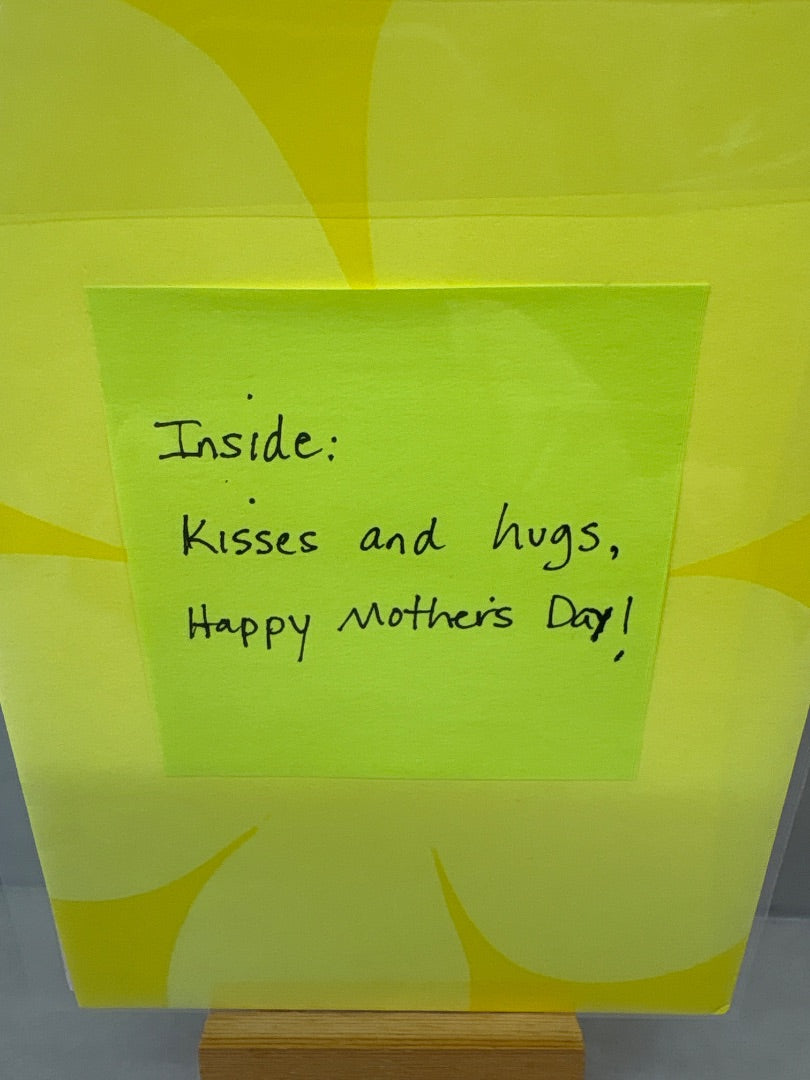 Inside:
Kisses and hugs,
Happy Mother's Day!